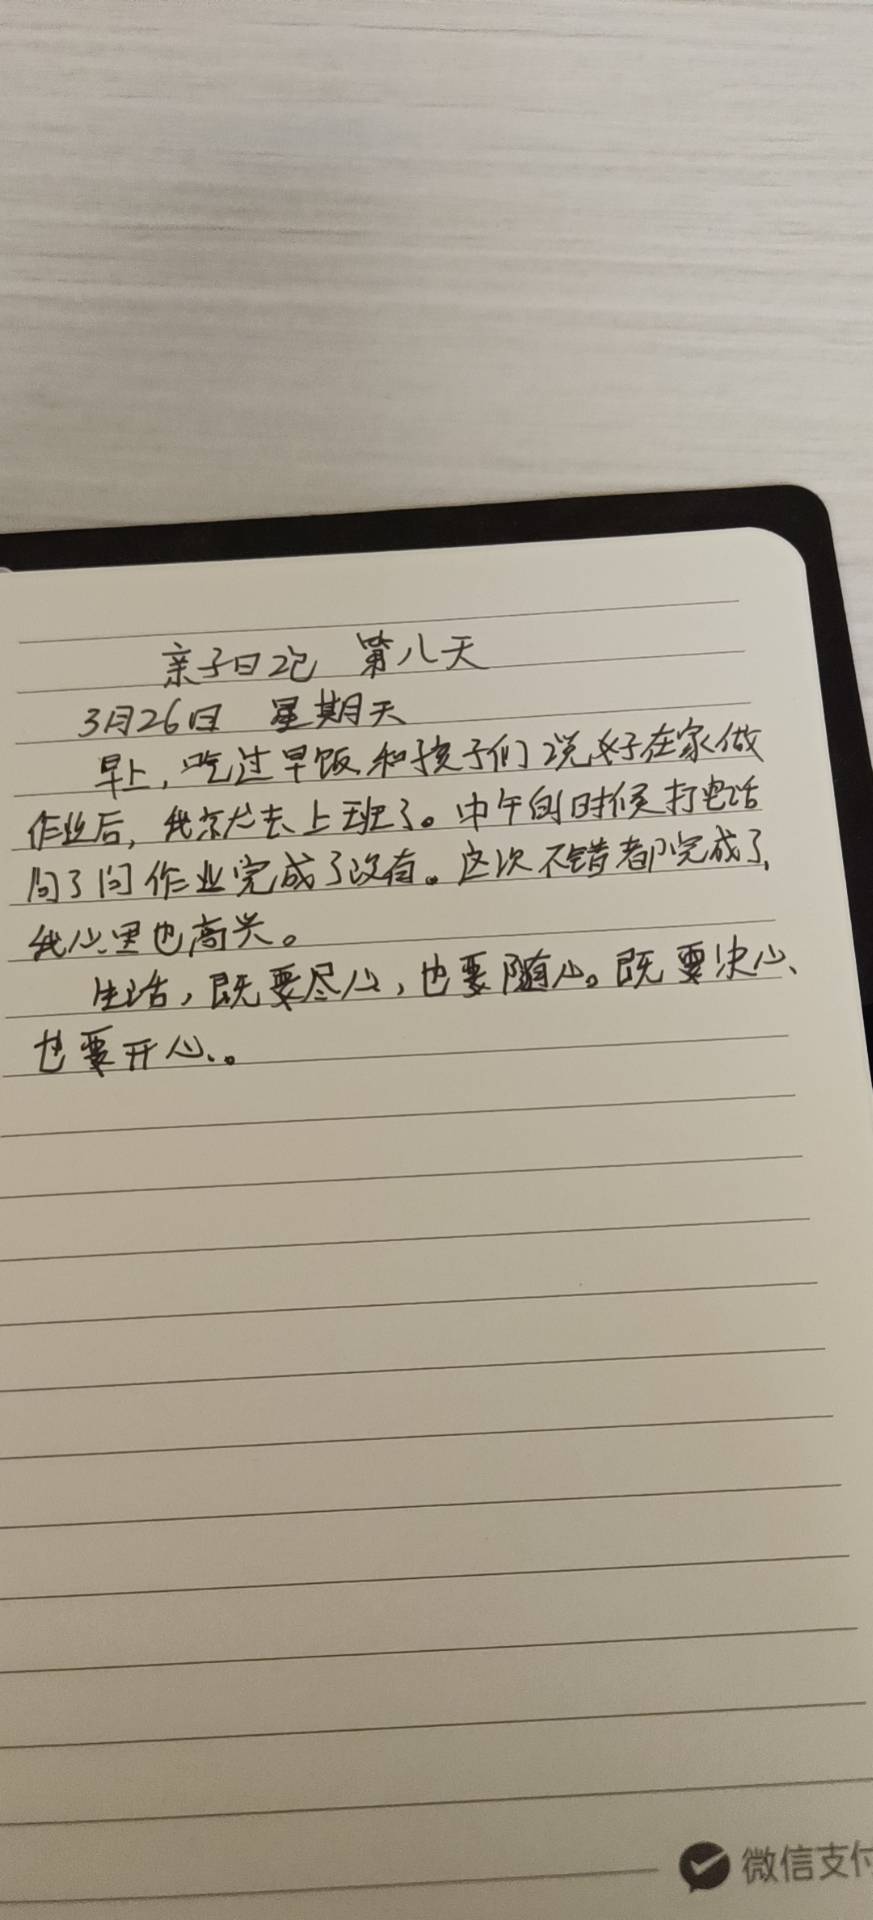 亲子日记 第八天
3月26日 星期天
早上,吃过早饭,和孩子们说好在家做
作业后,我就去上班了。中午的时候打电话
问了问作业完成了没有。这次不错都完成了,
我心里也高兴。
生活,既要尽心,也要随心。既要决心、
也要开心。
微信支付